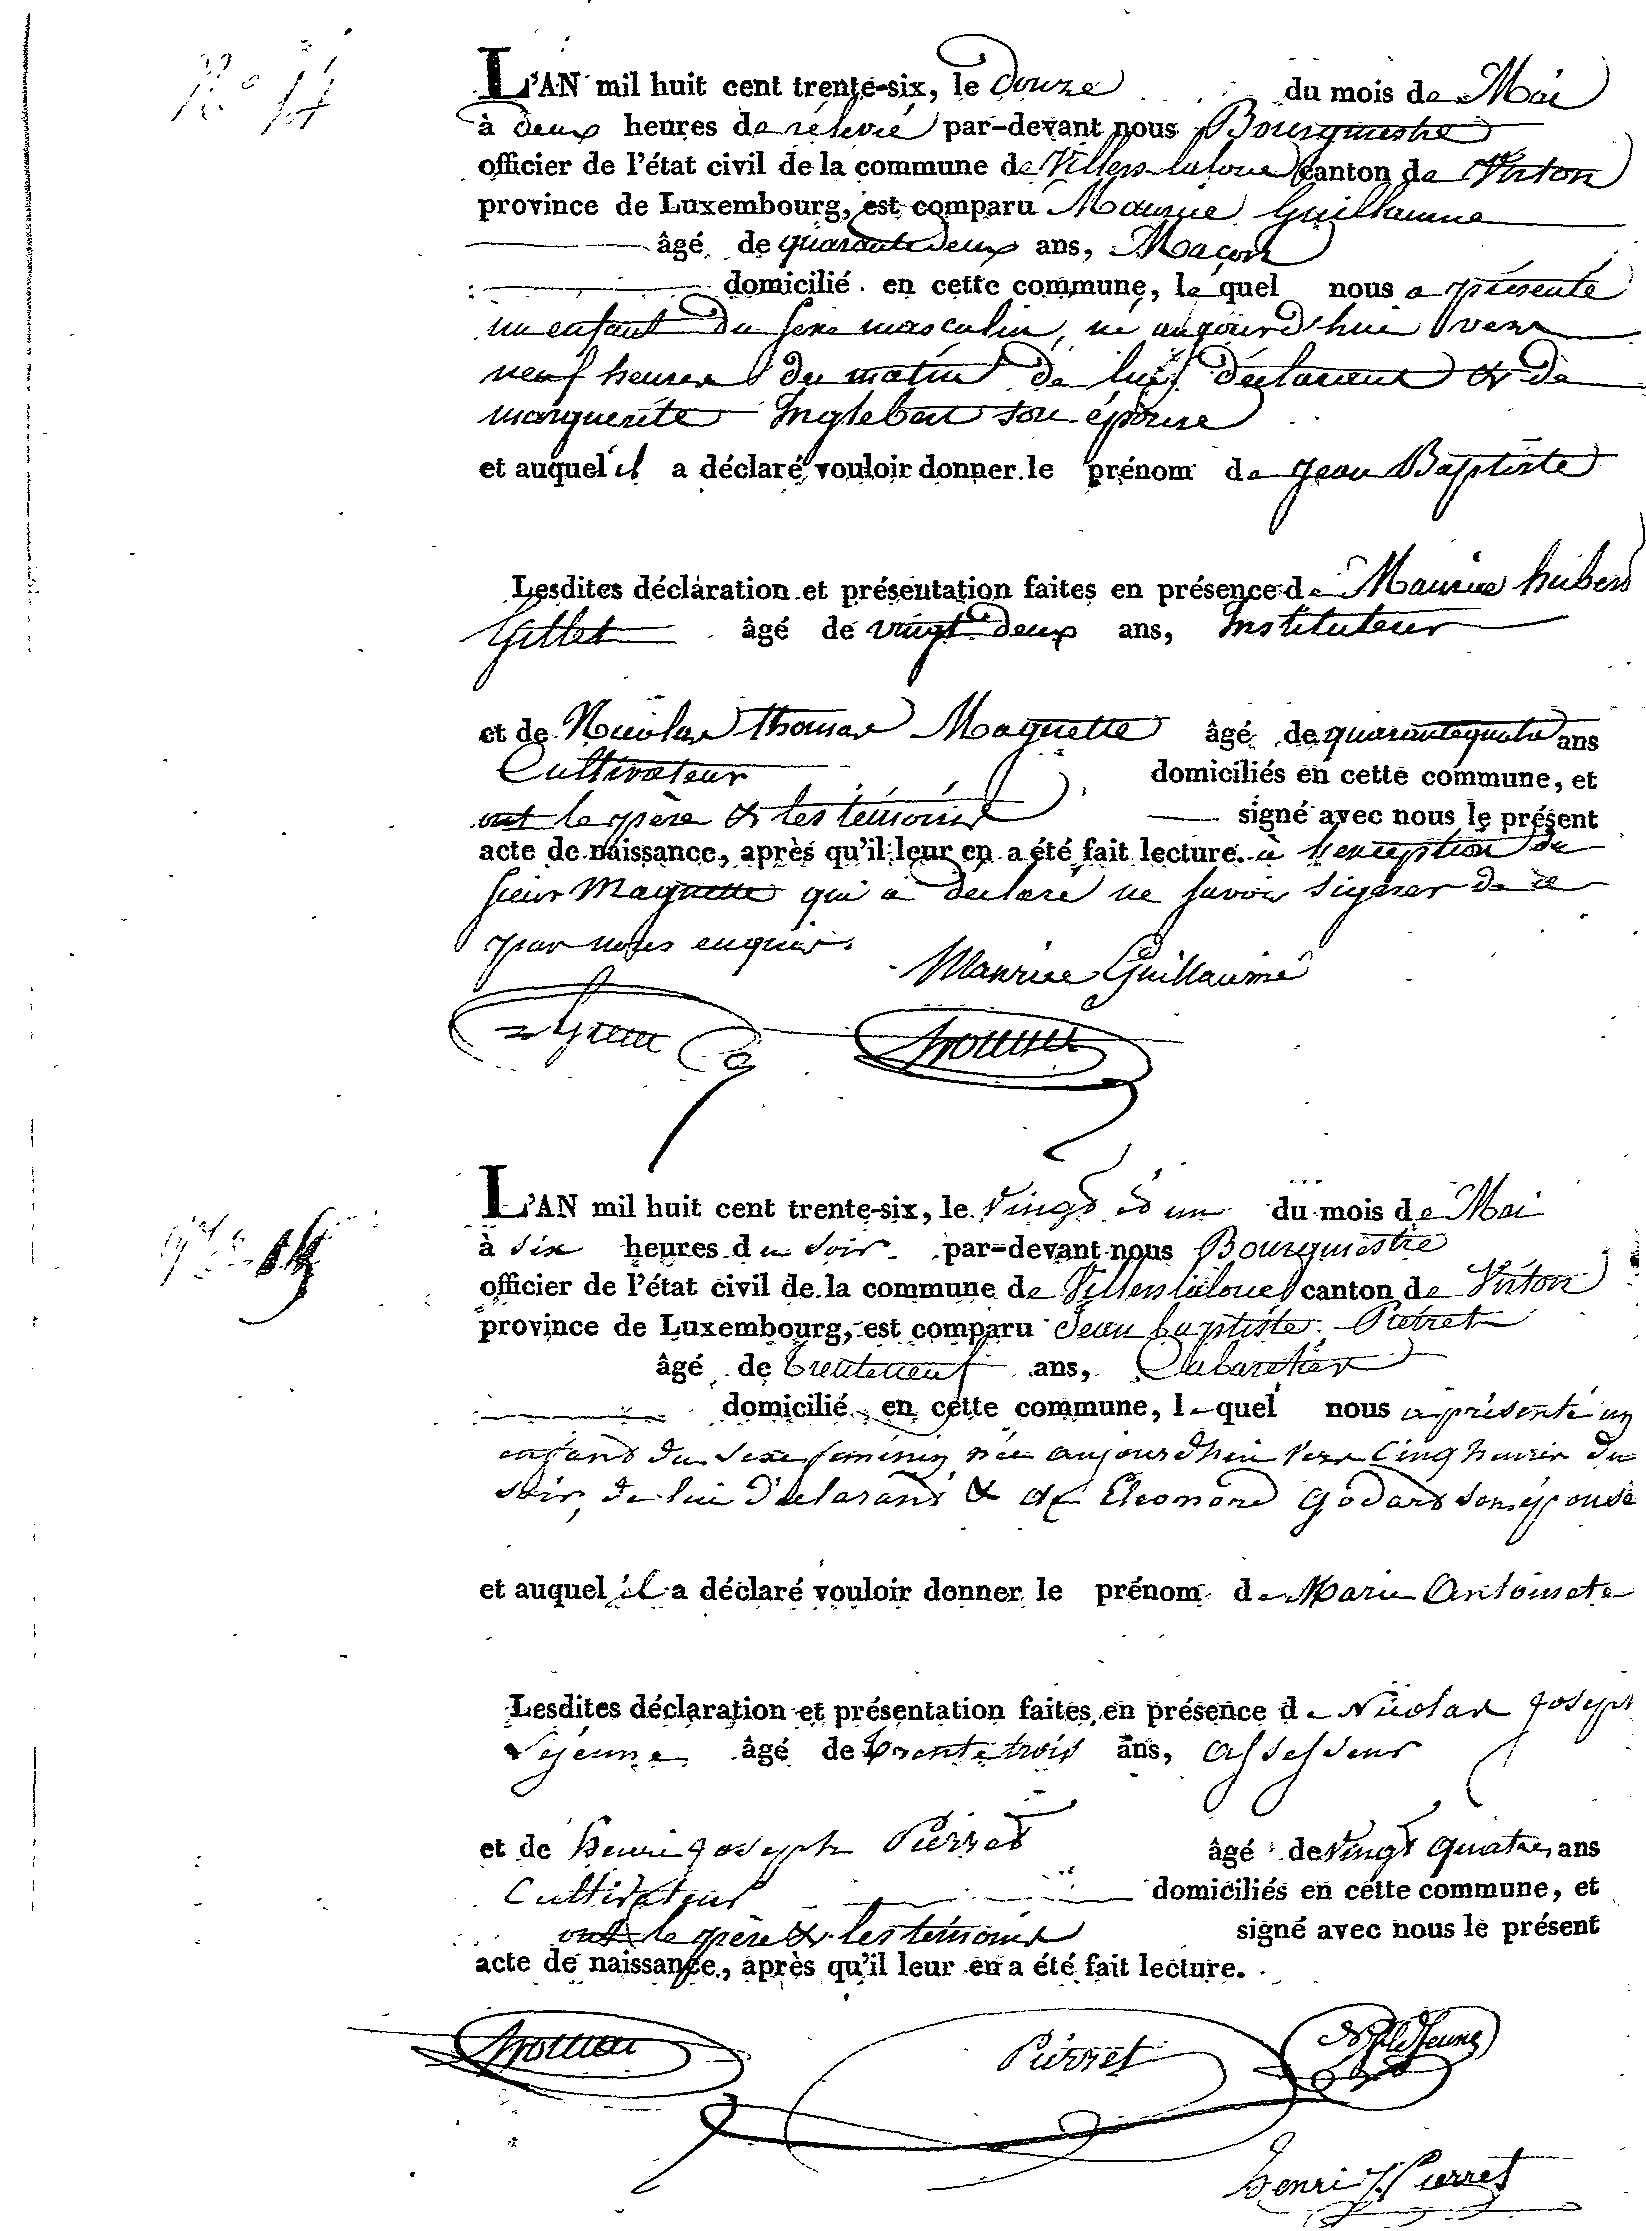 N° 14
L'AN mil huit cent trente-six, le Douze du mois de Mai
à deux heures de rélevée par-devant nous Bourgmestre
officier de l'état civil de la commune de Villers-laloue canton de Virton
province de Luxembourg, est comparu Maurice Guillaume
âgé de quarante deux ans, Maçon
domicilié en cette commune, le quel nous a présenté
un enfant du sexe masculin, né aujourd'hui vers
neuf heures du matin de lui déclarant & de
marguerite Inglebert son épouse
et auquel il a déclaré vouloir donner le prénom de Jean Baptiste
Lesdites déclaration et présentation faites en présence de Maurice hubert
Gillet âgé de vingt deux ans, Instituteur
et de Nicolas thomas Maquette âgé de quarante quatre ans
Cultivateur domiciliés en cette commune, et
ont le père & les témoins signé avec nous le présent
acte de naissance, après qu'il leur en a été fait lecture. à l'exception du
sieur Maquette qui a déclaré ne savoir signer de ce
par nous enquis.
Maurice Guillaume
N° 15
L'AN mil huit cent trente-six, le Vingt & un du mois de Mai
à six heures du soir par-devant nous Bourgmestre
officier de l'état civil de la commune de Villers laloue canton de Virton
province de Luxembourg, est comparu Jean baptiste Pierret
âgé de trenteneuf ans, Cabaretier
domicilié en cette commune, le quel nous a présenté un
enfant du sexe feminin née aujourdhui vers Cinq heures du
soir, de lui déclarant & de Eleonore Godard son épouse
et auquel il a déclaré vouloir donner le prénom de Marie Antoinete
Lesdites déclaration et présentation faites en présence de Nicolas Joseph
Lejeune âgé de trente trois ans, assesseur
et de henri Joseph Pierret âgé de vingt quatre ans
Cultivateur domiciliés en cette commune, et
ont le père & les témoins signé avec nous le présent
acte de naissance, après qu'il leur en a été fait lecture.
Pierret
NJ LeJeune
henri J Pierret